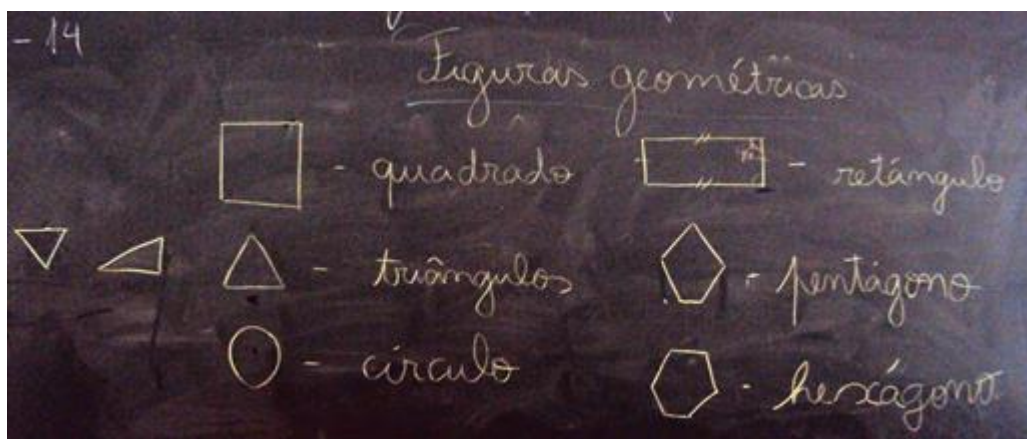 - 14
Figuras geométricas
- quadrado - retángulo
- triângulos - pentágono
- círculo - hexágono